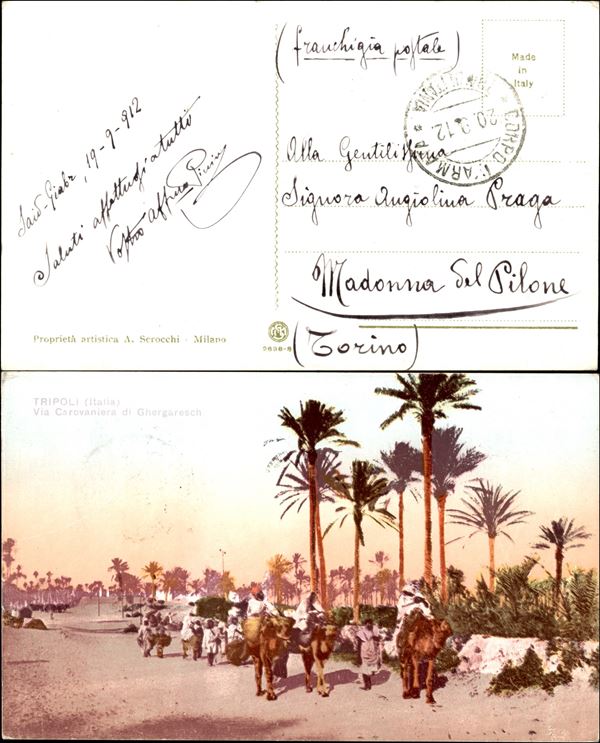 (franchigia postale)
Made
in
Italy
CORPO D'ARM
20.9.12
Said-Giabr, 19-9-912
Saluti affettuosi a tutti
Vostro affmo Pinin
Alla Gentilissima
Signora Angiolina Praga
Madonna del Pilone
(Torino)
Proprietà artistica A. Scrocchi - Milano
2696-8
TRIPOLI (Italia)
Via Carovaniera di Ghergaresch